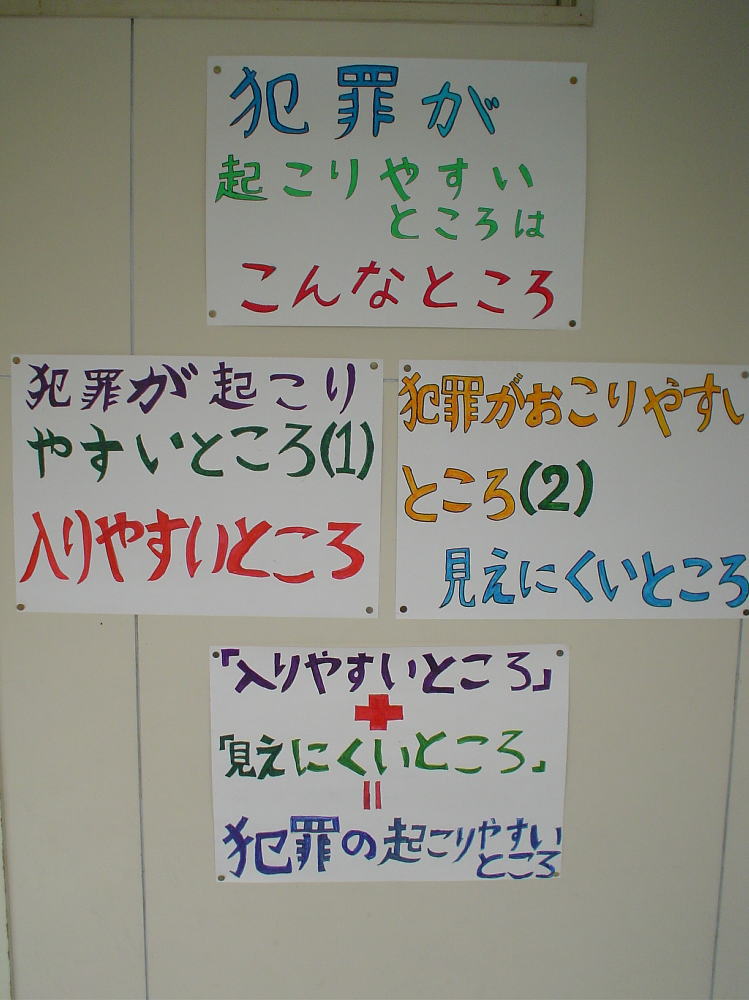 犯罪が
起こりやすい
ところは
こんなところ
犯罪が起こり
やすいところ(1)
入りやすいところ
犯罪がおこりやすい
ところ(2)
見えにくいところ
「入りやすいところ」
+
「見えにくいところ」
=
犯罪の起こりやすい
ところ